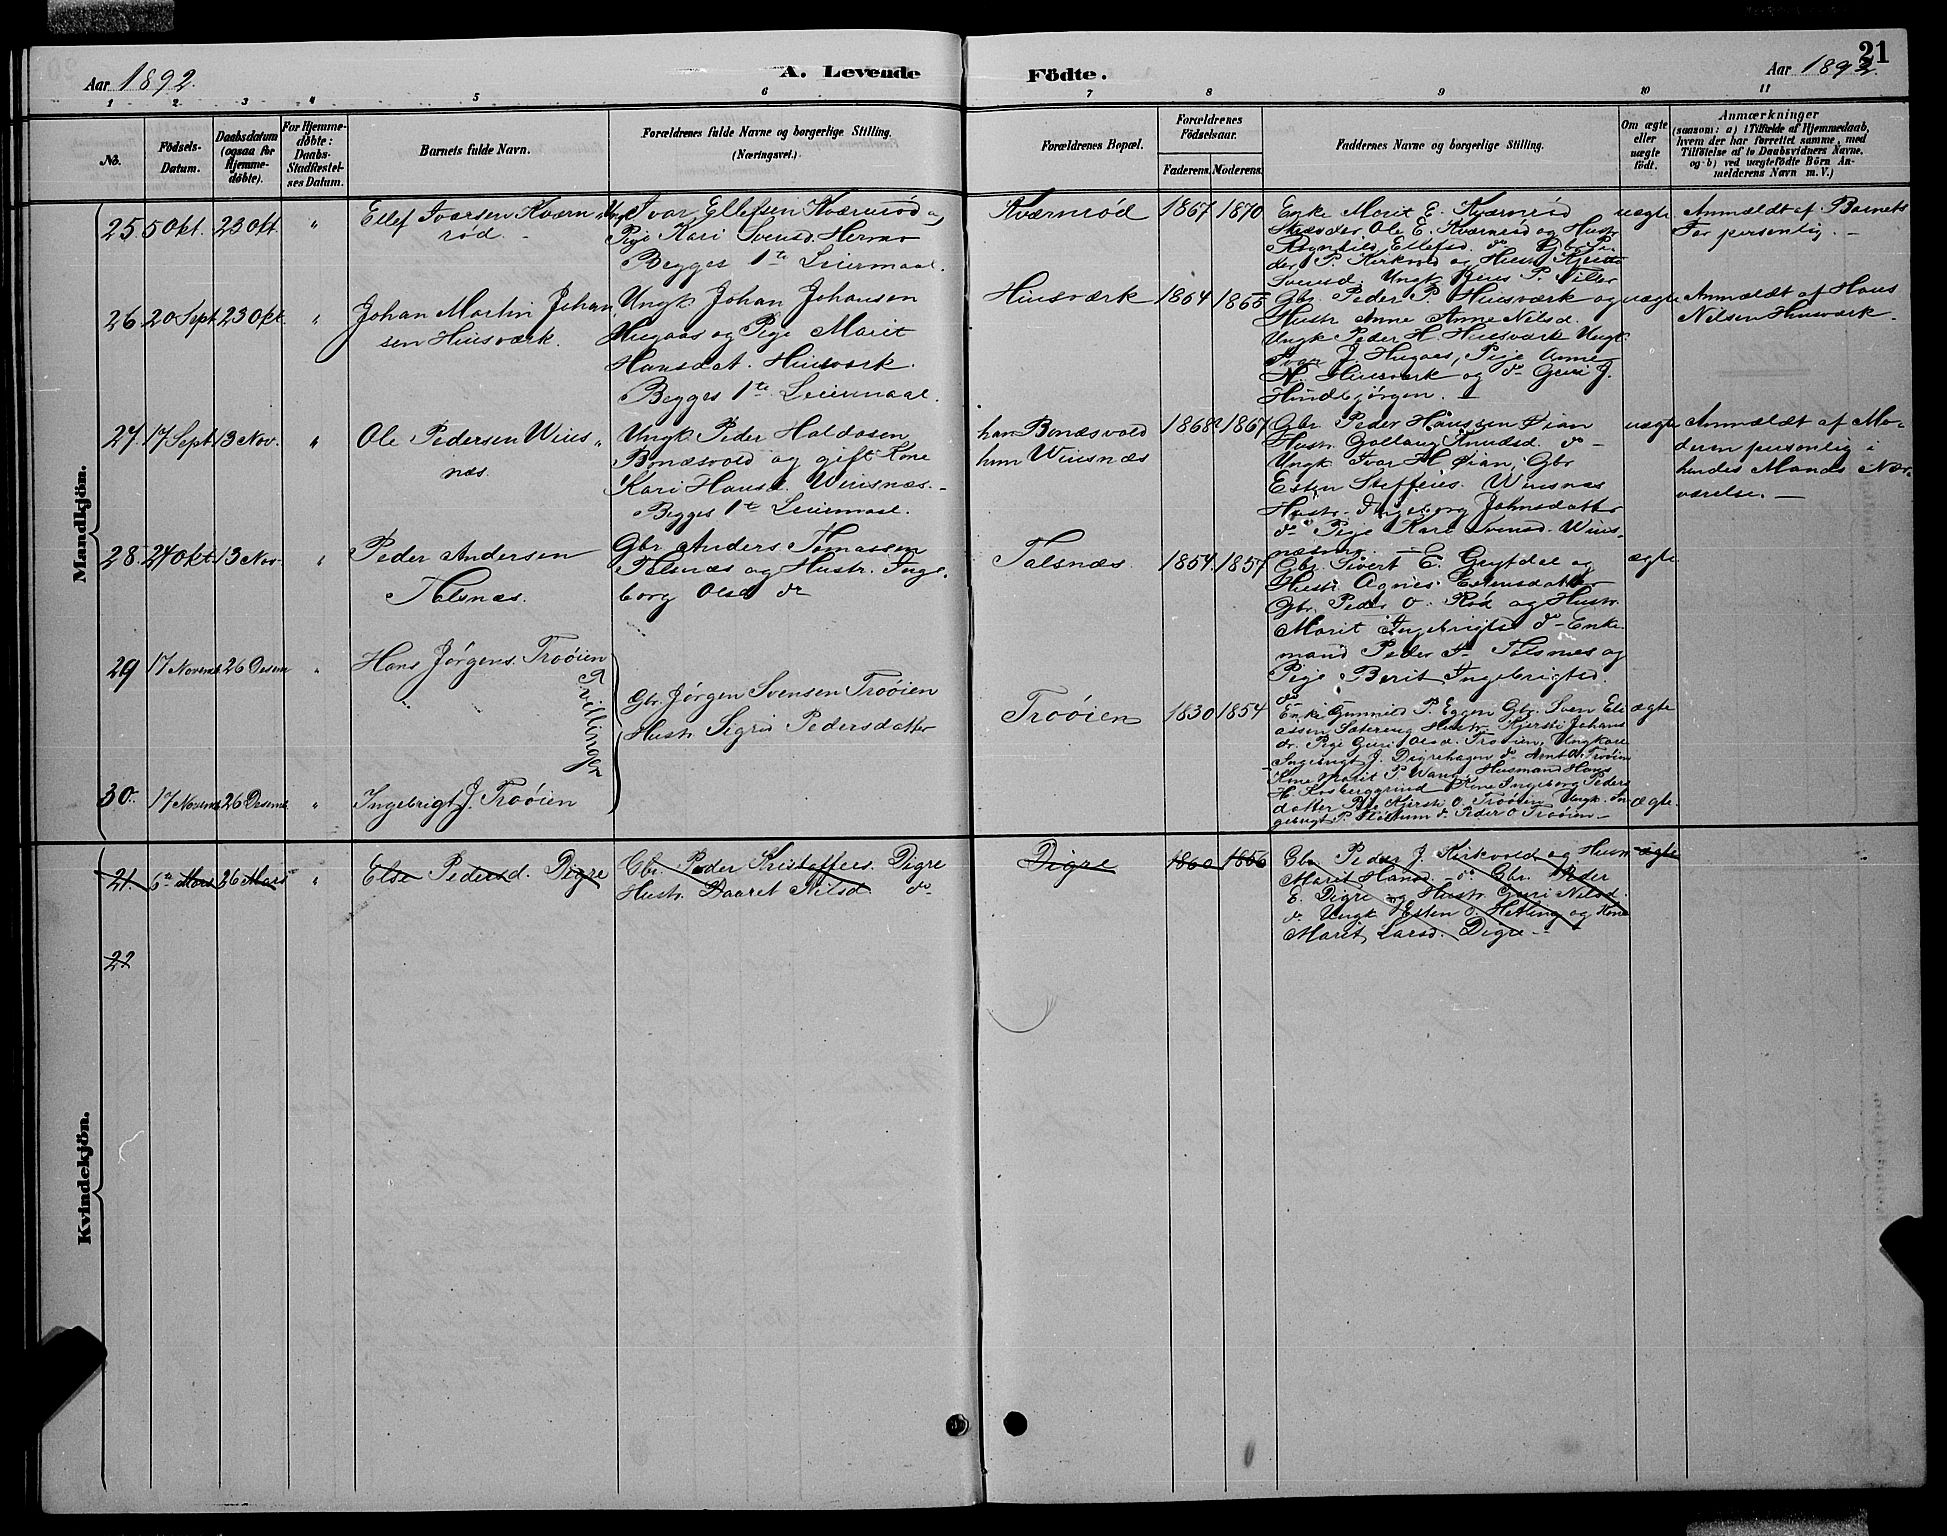 21
Aar 1892.
A. Levende Födte.
Aar 1892.
1 2 3 4 5 6 7 8 9 10 11
No.
Födsels-Datum.
Daabsdatum (ogsaa for Hjemme-döbte).
For Hjemme-döbte: Daabs-Stadfæstel-ses Datum.
Barnets fulde Navn.
Forældrenes fulde Navne og borgerlige Stilling.
(Næringsvei.)
Forældrenes Bopæl.
Forældrenes Födselsaar.
Faderens. Moderens.
Faddernes Navne og borgerlige Stilling.
Om ægte eller uægte födt.
Anmærkninger
(saasom: a) i Tilfælde af Hjemmedaab,
hvem der har forrettet samme, med
Tilföielse af to Daabsvidners Navne,
og b) ved uægtefödte Börn An-
melderens Navn m. V.)
Mandkjön.
25. 5 Okt. 23 Okt. "
Ellef Ivarsen Kværn
rød.
Ungk. Ivar Ellefsen Kværnrød og
Pige Kari Svensd. Hermo
Begges 1te Leiermaal.
Kværnrød 1867 1870
Enke Marit E. Kværnrød
Ole E. Kværnrød og Hustr
Ragnhild Ellefsd. do Gbr. Pe-
der P. Kirkvold og Hustr
Svensd. Ungk. P. Tiller
uægte
Anmældt af Barnets
Far personlig. -
26. 20 Sept 23 Okt. "
Johan Martin Johan
sen Huusværk.
Ungk Johan Johansen
Hugaas og Pige Marit
Hansdat. Huusværk.
Begges 1te Leiermaal.
Huusværk 1864 1868
Gbr. Peder P. Huusværk og
Hustr Anne Anne Nilsd.
Ungk Peder H. Huusværk Ungk
Ivar J. Hugaas, Pige Anne
N. Huusværk og do Guri J.
Hindbjørgen.
uægte
Anmældt af Hans
Nilsen Huusværk.
27. 17 Sept 13 Nov. "
Ole Pedersen Wins
næs.
Ungk Peder Haldosen
Bonæsvold og gift Kone
Kari Hansd. Winsnæs.
Begges 1te Leiermaal.
han Bonæsvold
hun Winsnæs
1868 1867
Gbr Peder Hanssen Øian
Hustr. Gollaug Knudsd. do -
Ungk Ivar H Øian, Gbr
Esten Steffens. Winsnæs
Hustr. Ingeborg Johnsdatter
do Pige Kari Svensd. Wins-
uægte
Anmældt af Mo-
deren personlig i
hendes Mands Nær-
værelse. -
28. 24 Okt. 13 Nov. "
Peder Andersen
Talsnæs.
Gbr Anders Tomassen
Talsnæs og Hustr. Inge
borg Olsd do
Talsnæs. 1854. 1857
Gbr. Sivert E. Grytdal og
Hustr. Agnes Estensdatter
Gbr. Peder O. Rød og Hustr.
Marit Ingebrigtsd do - Enke
mand Peder Talsnæs og
Pige Berit Ingebrigtsd.
do
ægte
29 17 Novemb 26 Desem "
Hans Jørgens. Trøien
Tvillinger
Gbr Jørgen Svensen Trøien
Hustr Sigrid Pedersdatter
Trøien 1830 1854
Enke Gunnild P. Eggen Gbr. Sven Eli
assen Sætereng Hustr. Kjersti Johans
dr. Pige Guri Olsd. Trøien, Ungkarl
Ingebrigt J. Digrehagen do Arnt O. Trøien
Kone Marit P. Wang, Husmand Hans
H. Kosberggrind Kone Ingeborg Peders
datter Pige Kjersti O. Trøien Ungk. In
gebrigt P. do Peder O Trøien -
ægte
30. 17 Novemb 26 Desemb "
Ingebrigt J. Trøien
ægte.
Kvindekjön.
21 6te Mars 26 Mars "
Else Pedersd. Digre
Gbr. Peder Kristoffers. Digre
Hustr. Baaret Nilsd do
Digre 1860 1856
Gbr Peder J. Kirkvold og Hustr
Marit Hansd. - do Gbr. Peder
E. Digre og Hustr. Guri Nilsd.
do Ungk Esten O. Hetling og Kone
Marit Larsd. Digre -
ægte
22